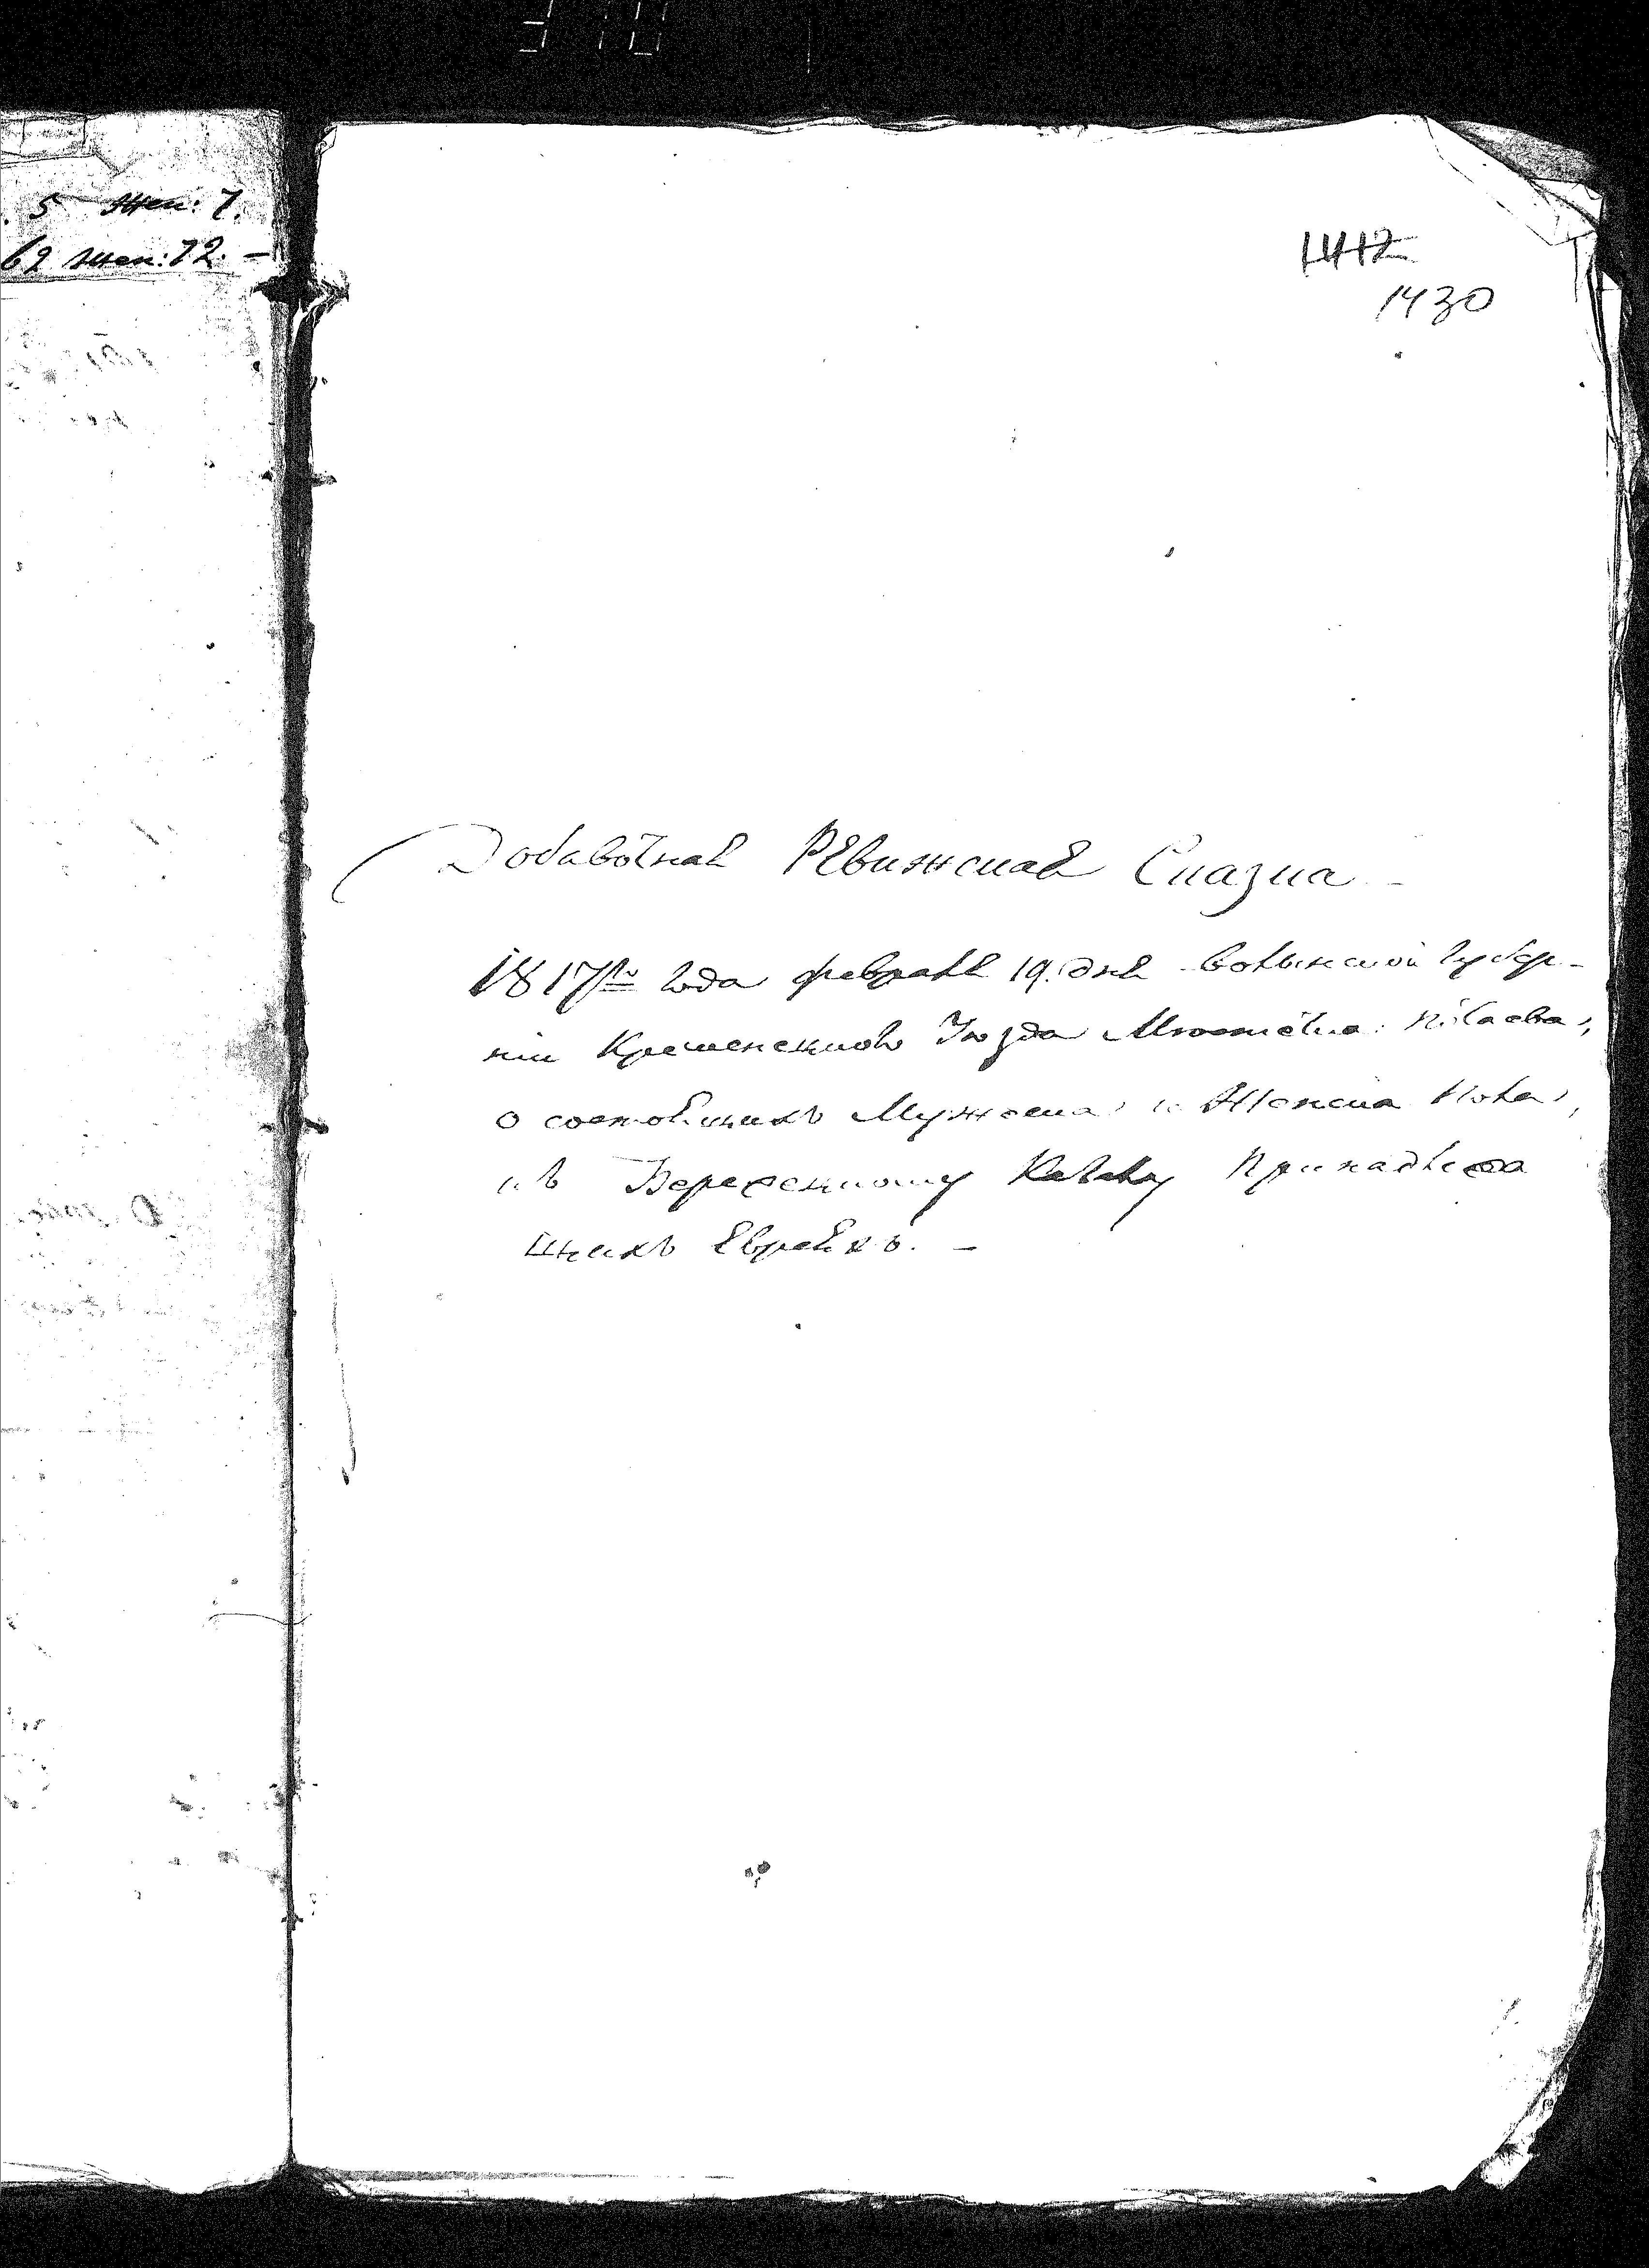 5 Жен: 7.
69 Жен: 72. –
1412
1430
Добавочная Ревижская Сказка
1817го года февраля 19. дня Волынской Губер-
нiи Кременецкого Уезда Местечка
о состоящихъ Мужеска и Женска Пола,
къ Кагалу Принадлежа
щихъ Евреяхъ. –